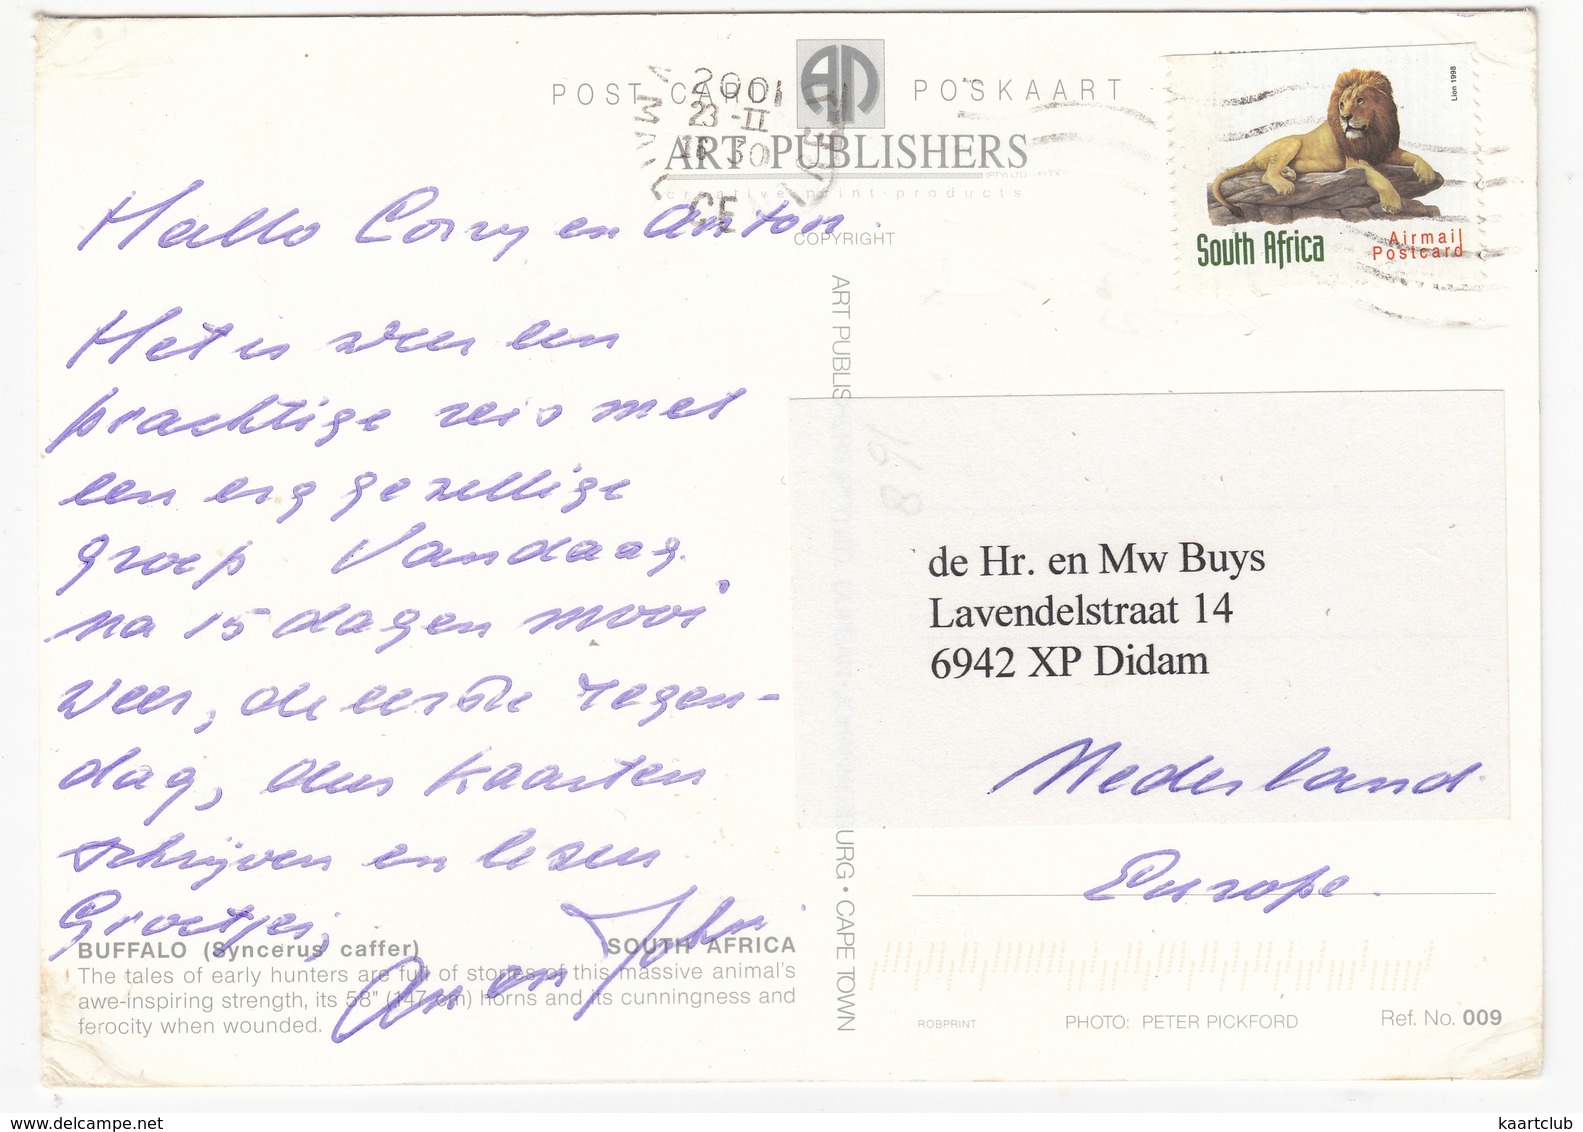 POST CARD POSKAART
2001
23-II
16 30
ART PUBLISHERS
(PTY) LTD
creative print products
COPYRIGHT
Lion 1998
South Africa
Airmail
Postcard
Hallo Corry en Anton.
Het is weer een
prachtige reis met
een erg gezellige
groep Vandaag,
na 15 dagen mooi
weer, de eerste regen-
dag, dus kaarten
schrijven en lezen
Groetjes,
An en John
ART PUBLIS
URG • CAPE TOWN
de Hr. en Mw Buys
Lavendelstraat 14
6942 XP Didam
Nederland.
Europe.
BUFFALO (Syncerus caffer) SOUTH AFRICA
The tales of early hunters are full of stories of this massive animal's
awe-inspiring strength, its 58" (147 cm) horns and its cunningness and
ferocity when wounded.
ROBPRINT PHOTO: PETER PICKFORD Ref. No. 009
www.delcampe.net kaartclub